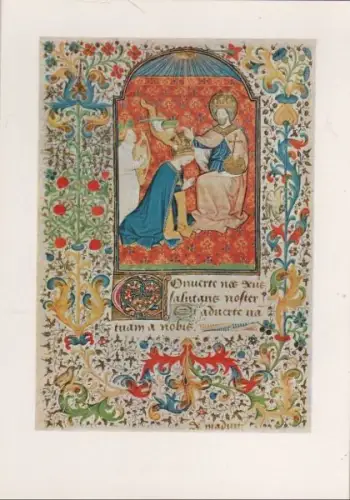 Conuerte nos deus
salutaris noster
Et auerte ira
tuam a nobis.